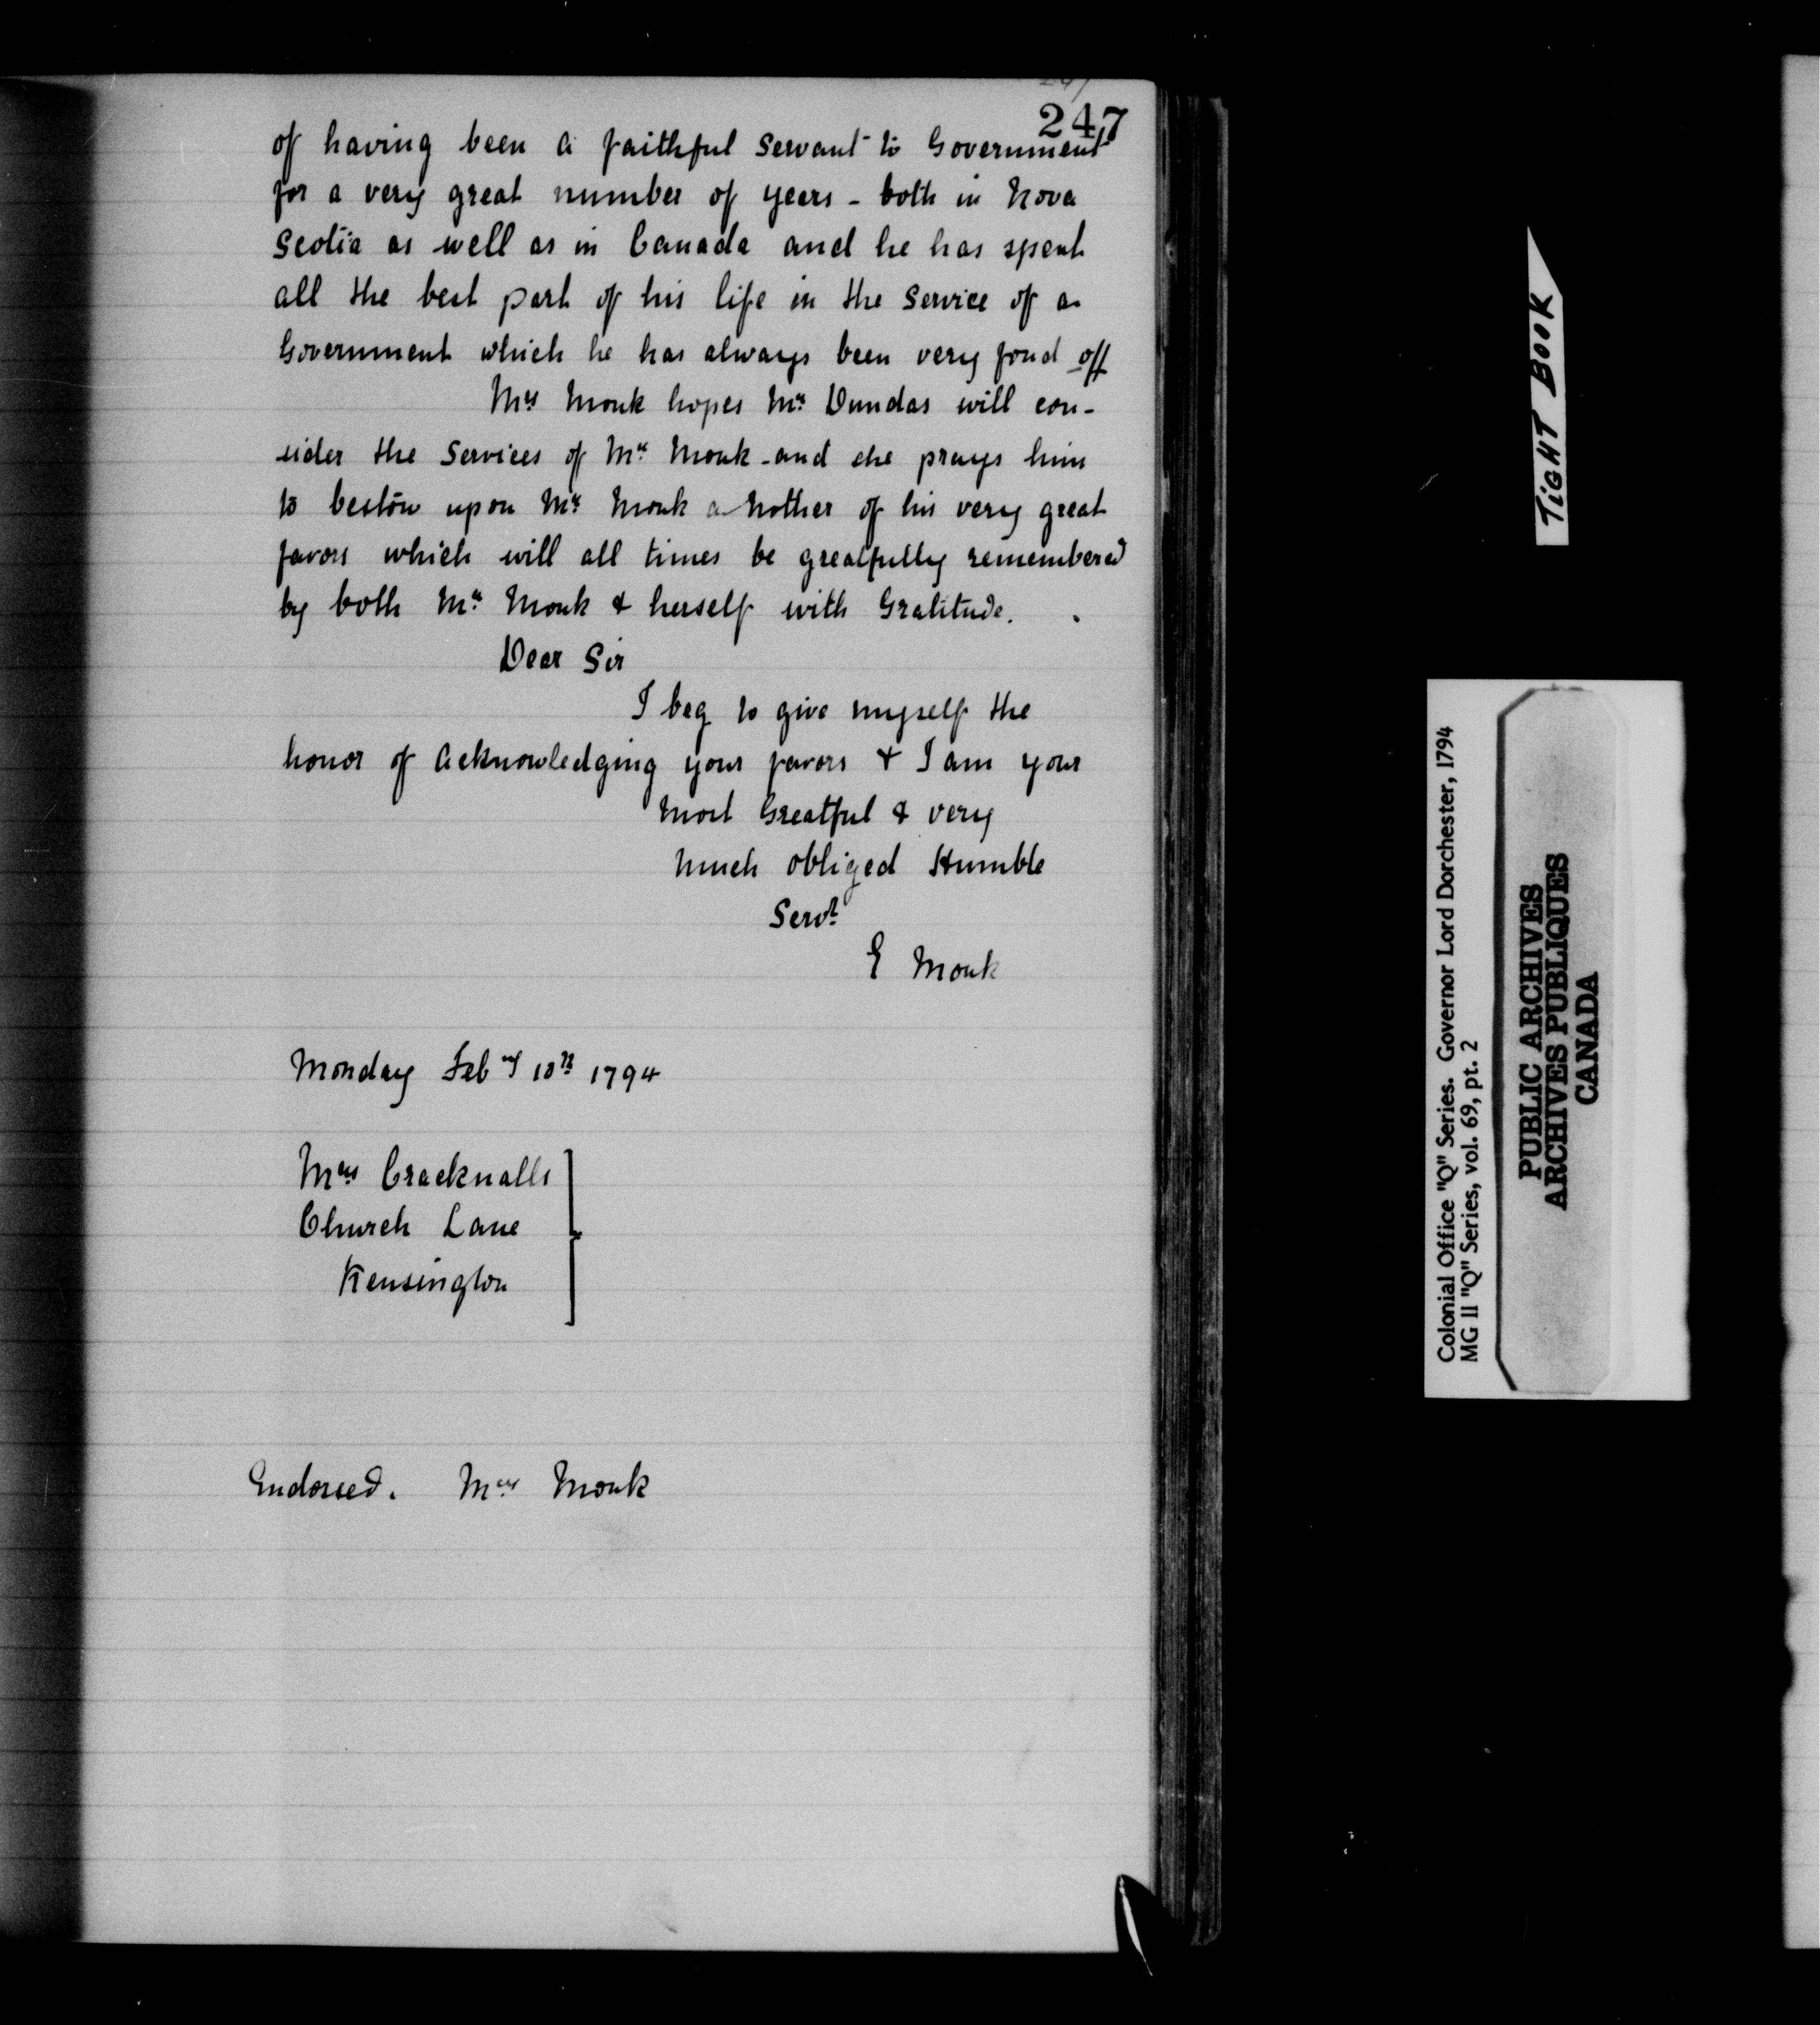 247
of having been a faithful Servant to Government
for a very great number of years - both in Nova
Scotia as well as in Canada and he has spent
all the best part of his life in the Service of a
Government which he has always been very fond off
Mrs Monk hopes Mr Dundas will con-
sider the Services of Mr Monk - and she prays him
to bestow upon Mr Monk a Nother of his very great
favors which will all times be greatfully remembered
by both Mr Monk & herself with Gratitude.
Dear Sir
I beg to give myself the
honor of acknowledging your favors & I am your
Most Greatful & very
Much obliged Humble
Servt
E Monk
Monday Feby 10th 1794
Mrs Cracknalls
Church Lane
Kensington
Endorsed. Mrs Monk
TIGHT BOOK
Colonial Office "Q" Series. Governor Lord Dorchester, 1794
MG II "Q" Series, vol. 69, pt. 2
PUBLIC ARCHIVES
ARCHIVES PUBLIQUES
CANADA